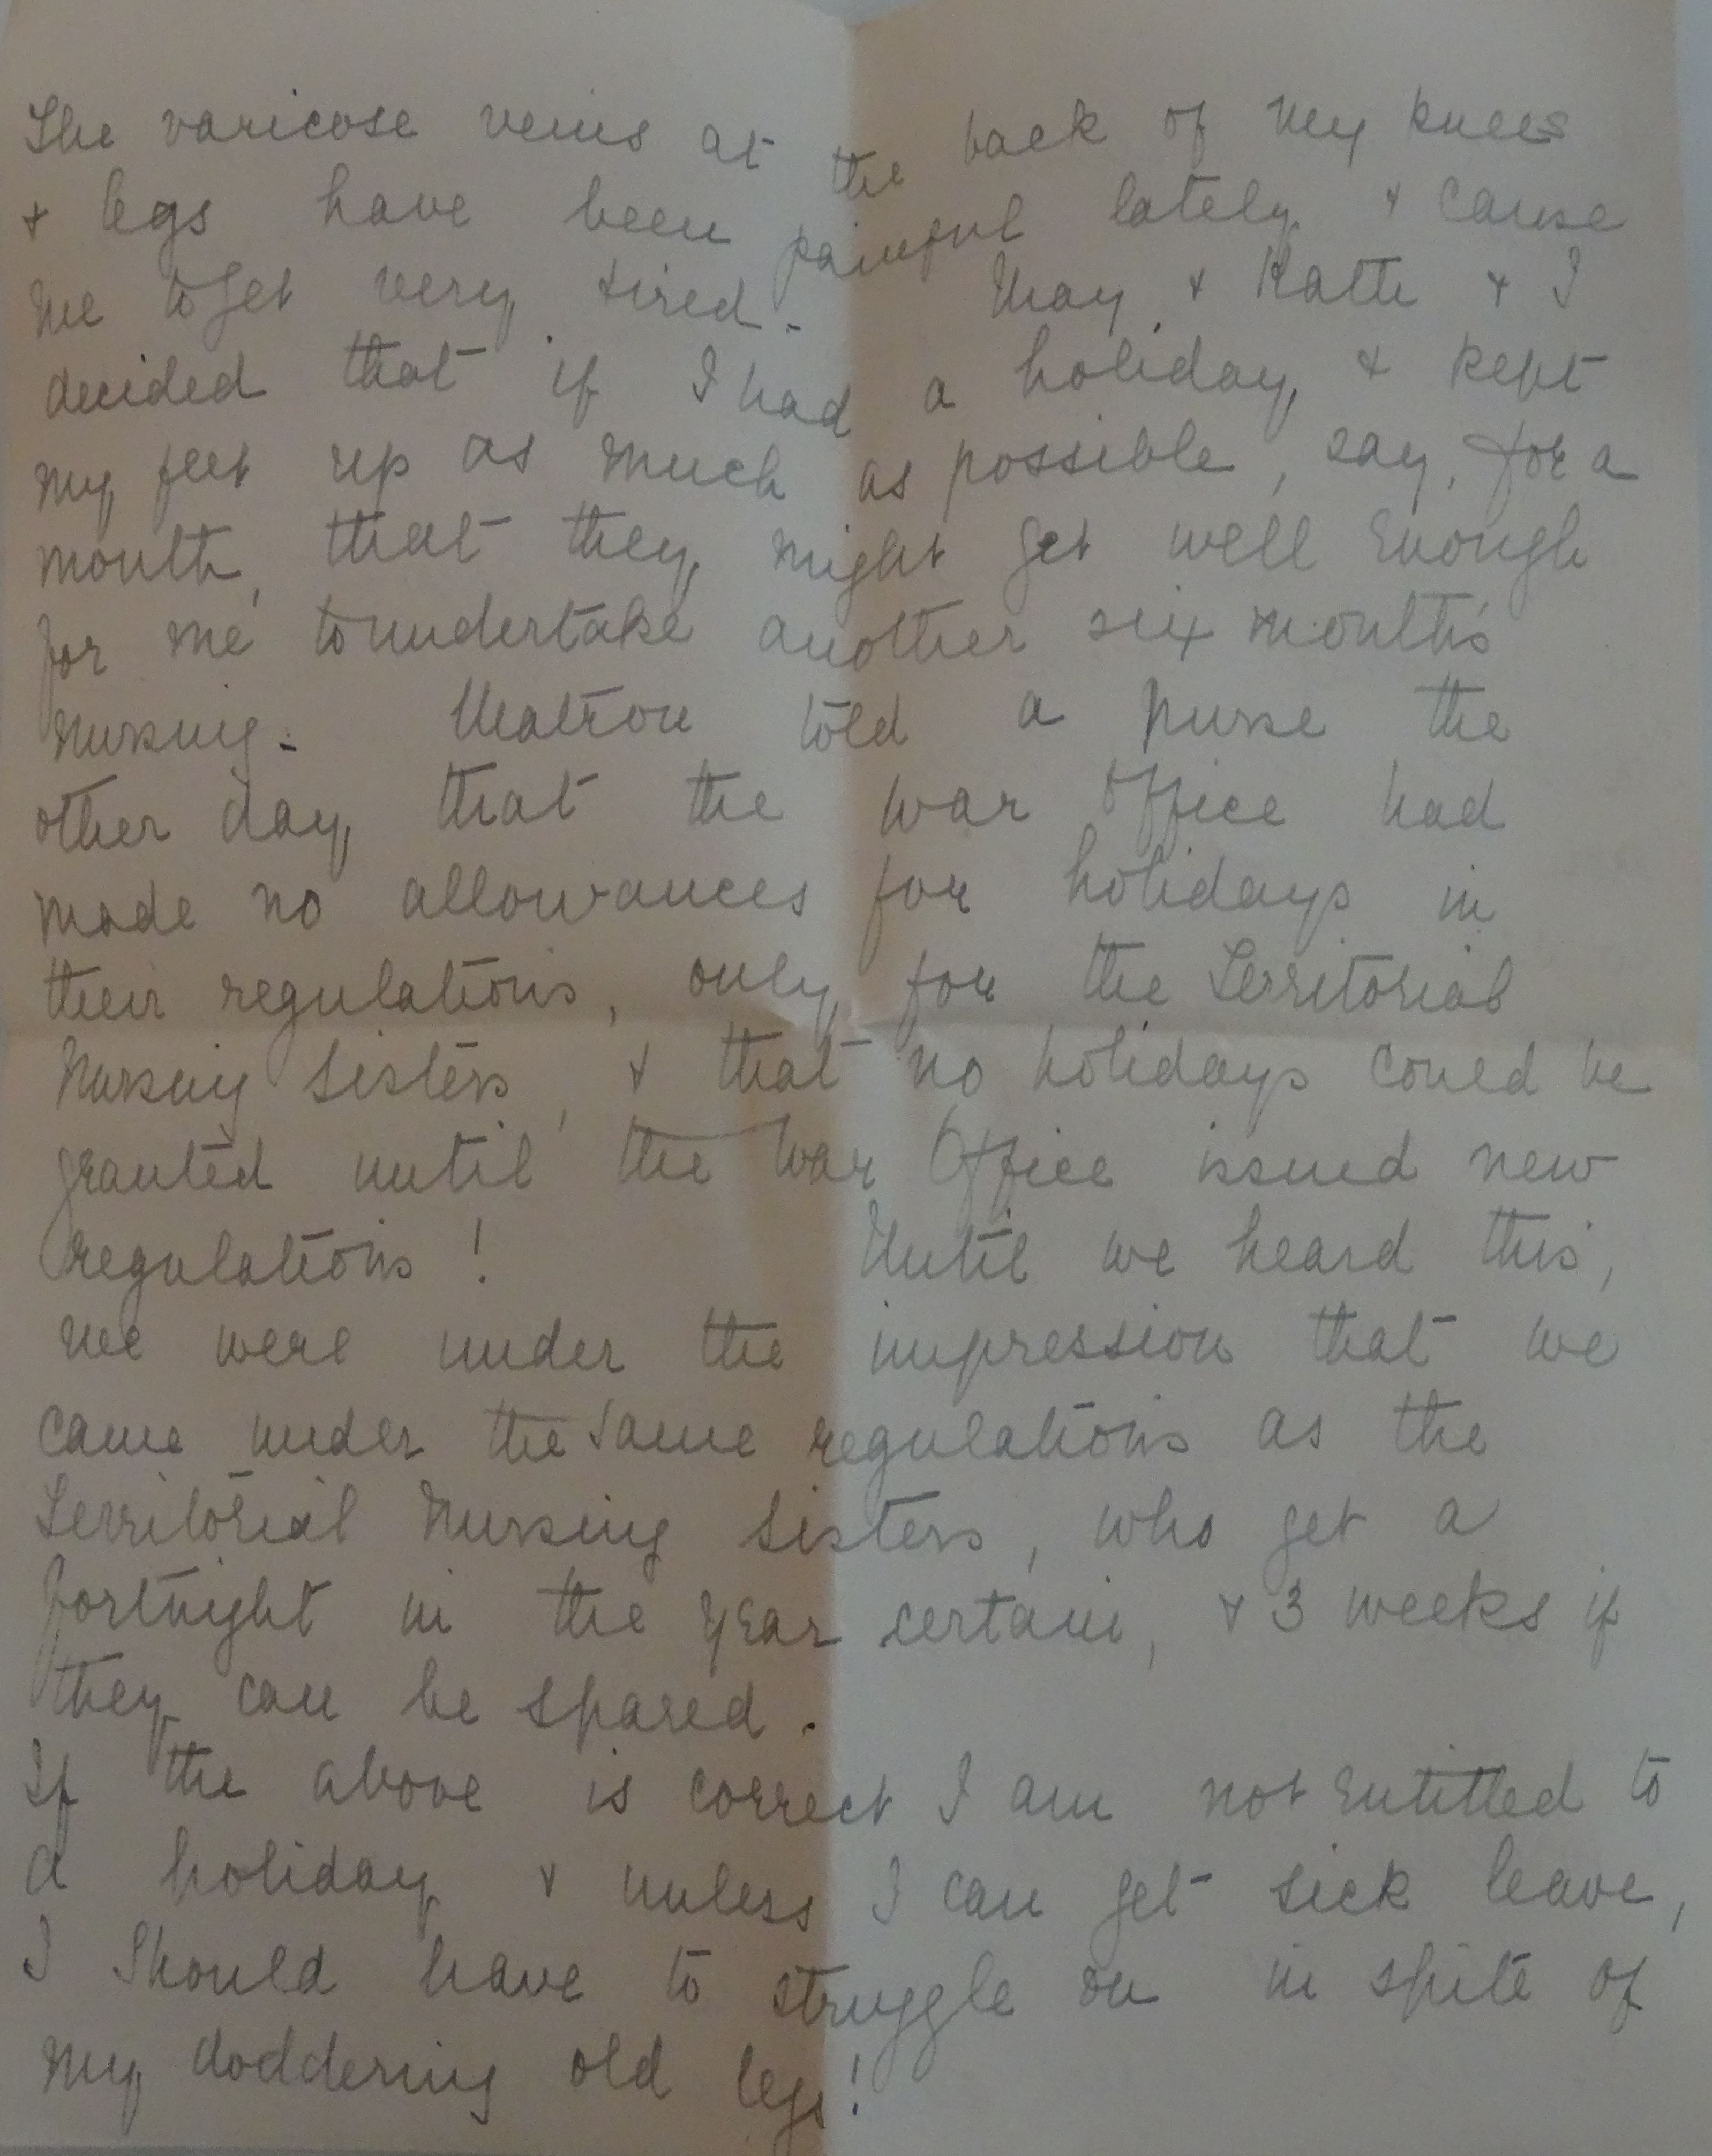 The varicose veins at the back of my knees
+ legs have been painful lately + cause
me to get very tired. May + Katie + I
decided that if I had a holiday, + kept
my feet up as much as possible, say, for a
month, that they might get well enough
for me to undertake another six month's
nursing. Matron told a nurse the
other day, that the War Office had
made no allowances for holidays in
their regulations, only for the Territorial
Nursing Sisters, + that no holidays could be
granted until the War Office issued new
regulations! Until we heard this,
we were under the impression that we
came under the same regulations as the
Territorial Nursing Sisters, who get a
fortnight in the year certain, + 3 weeks if
they can be spared.
If the above is correct I am not entitled to
a holiday + unless I can get sick leave,
I should have to struggle on in spite of
my doddering old legs!